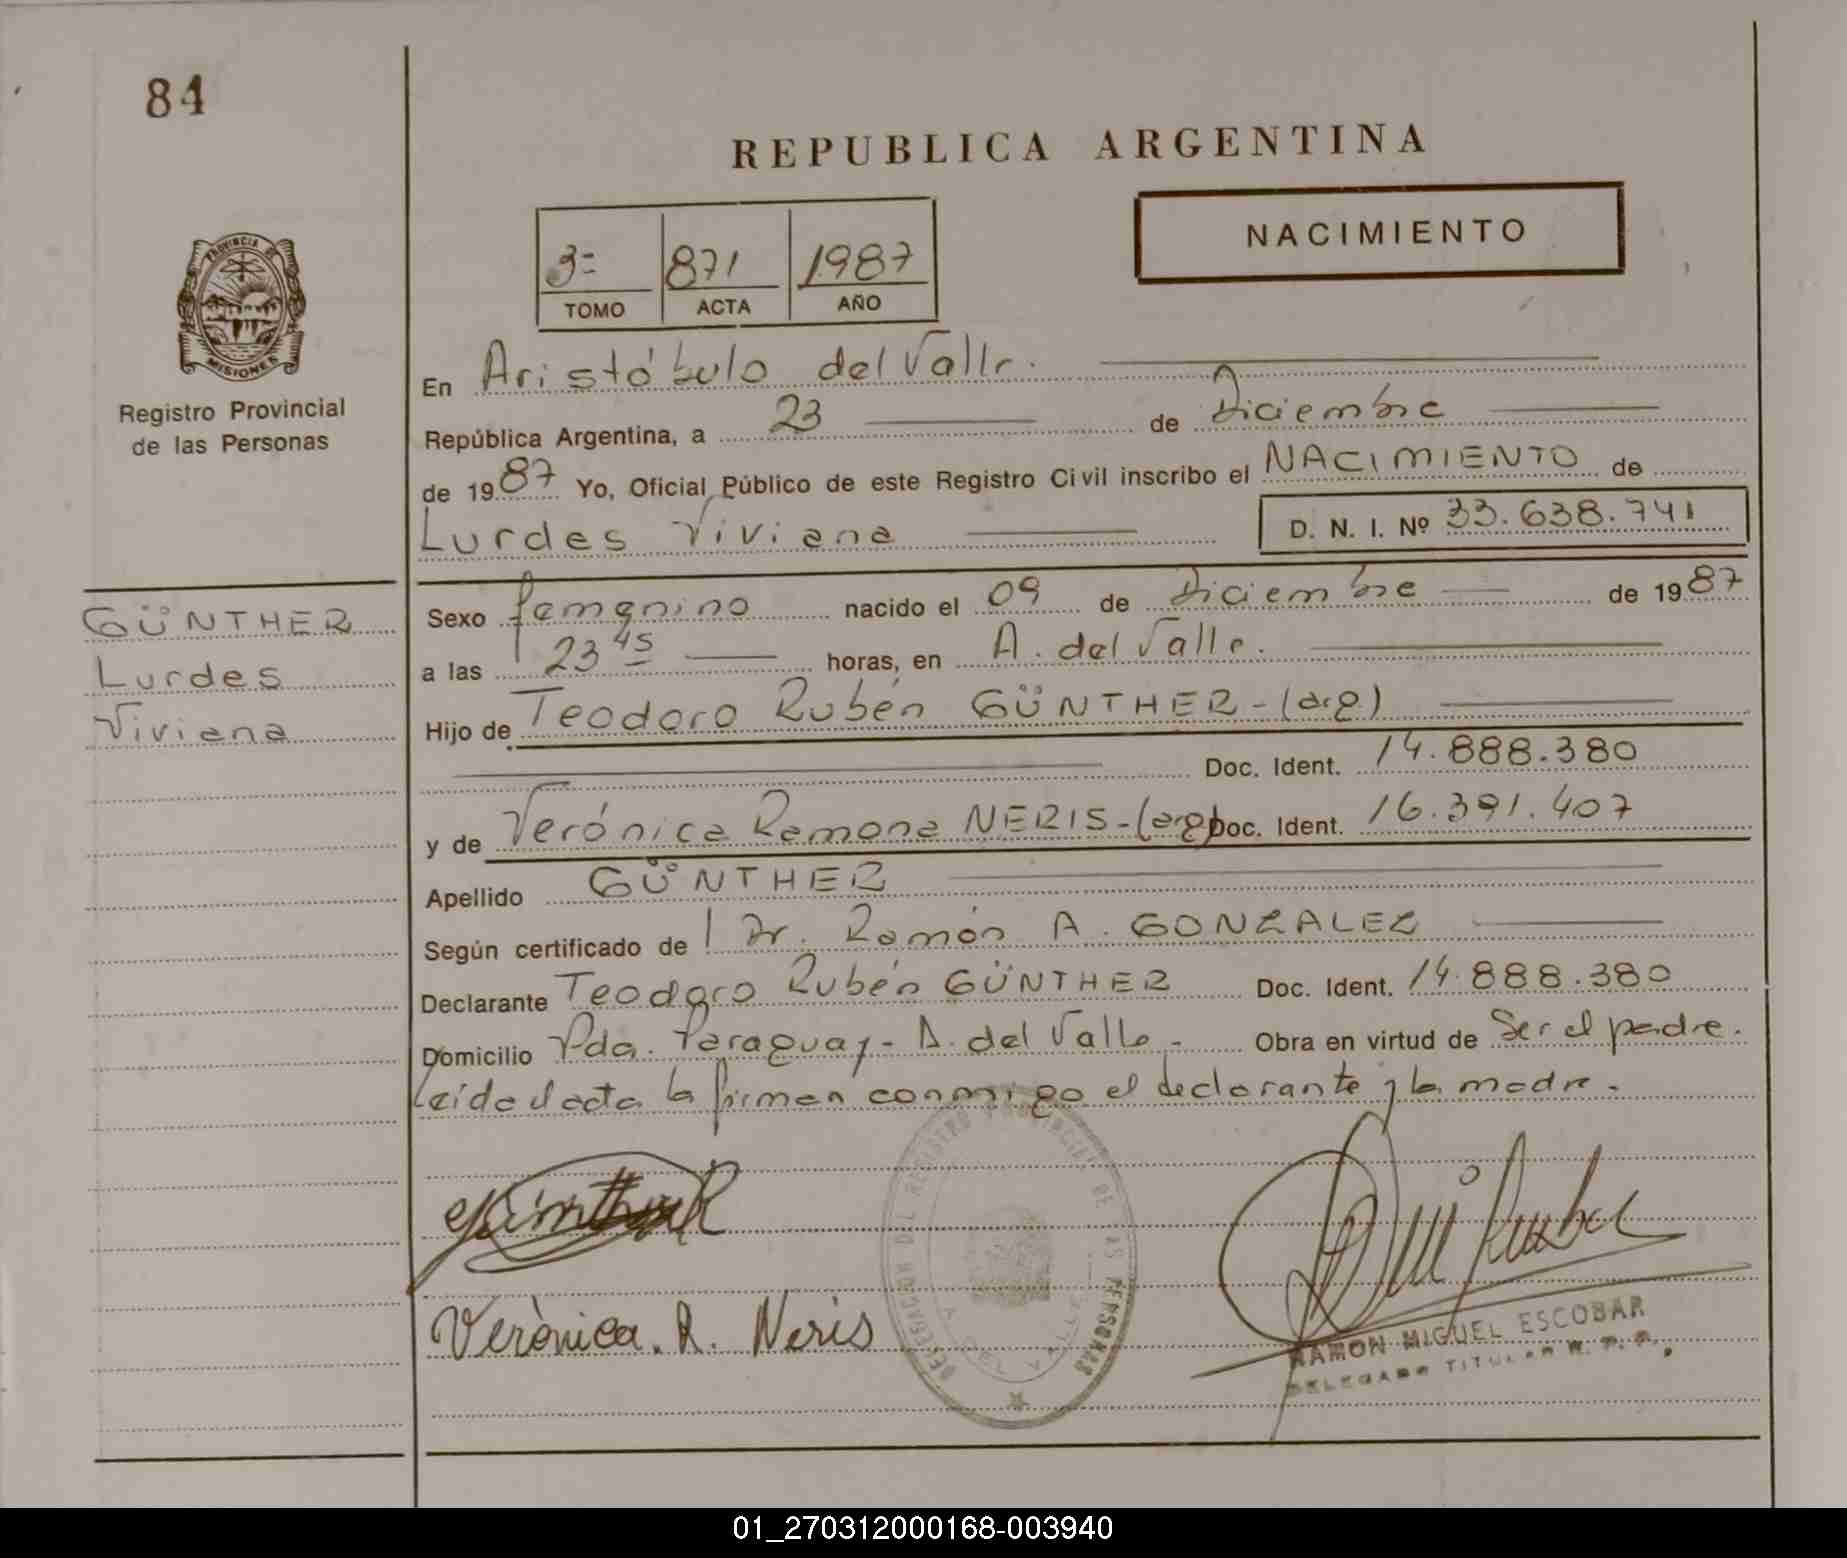 84
REPUBLICA ARGENTINA
NACIMIENTO
3= 871 1987
TOMO ACTA AÑO
PROVINCIA DE
MISIONES
Registro Provincial
de las Personas
En Aristóbulo del Valle.
República Argentina, a 23 de Diciembre
de 1987 Yo, Oficial Público de este Registro Civil inscribo el NACIMIENTO de
Lurdes Viviana D. N. I. Nº 33.638.741
GÜNTHER
Lurdes
Viviana
Sexo femenino nacido el 09 de Diciembre de 1987
a las 23 45 horas, en A. del Valle.
Hijo de Teodoro Rubén GÜNTHER-(arg)
Doc. Ident. 14.888.380
y de Verónica Ramona NERIS-(arg) Doc. Ident. 16.391.407
Apellido GÜNTHER
Según certificado de Dr. Ramón A. GONZALEZ
Declarante Teodoro Rubén GÜNTHER Doc. Ident. 14.888.380
Domicilio Pda. Paraguay- A. del Valle- Obra en virtud de Ser el padre.
Leída el acta la firman conmigo el declarante y la madre.
Verònica. R. Neris
DELEGACION DEL REGISTRO PROVINCIAL DE LAS PERSONAS
A. DEL VALLE
RAMON MIGUEL ESCOBAR
DELEGADO TITULAR R. P. P.
01_270312000168-003940